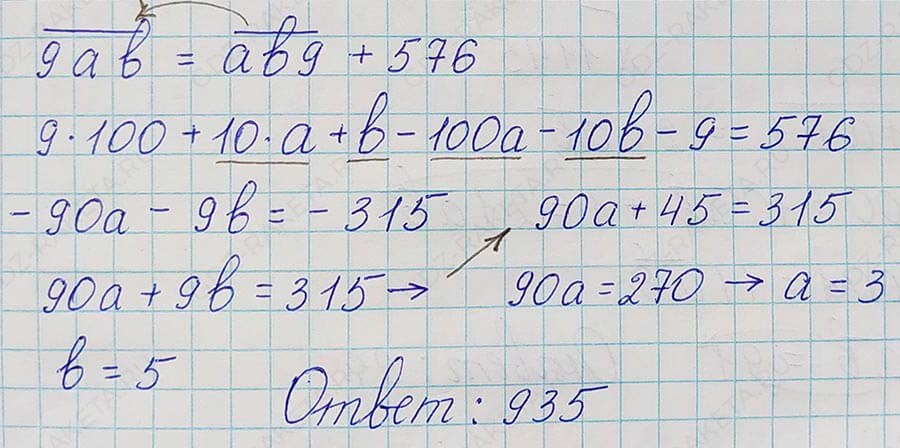 9ab = ab9 + 576
9·100 + 10·a + b - 100a - 10b - 9 = 576
-90a - 9b = -315
90a + 45 = 315
90a + 9b = 315 →
90a = 270 → a = 3
b = 5
Ответ: 935